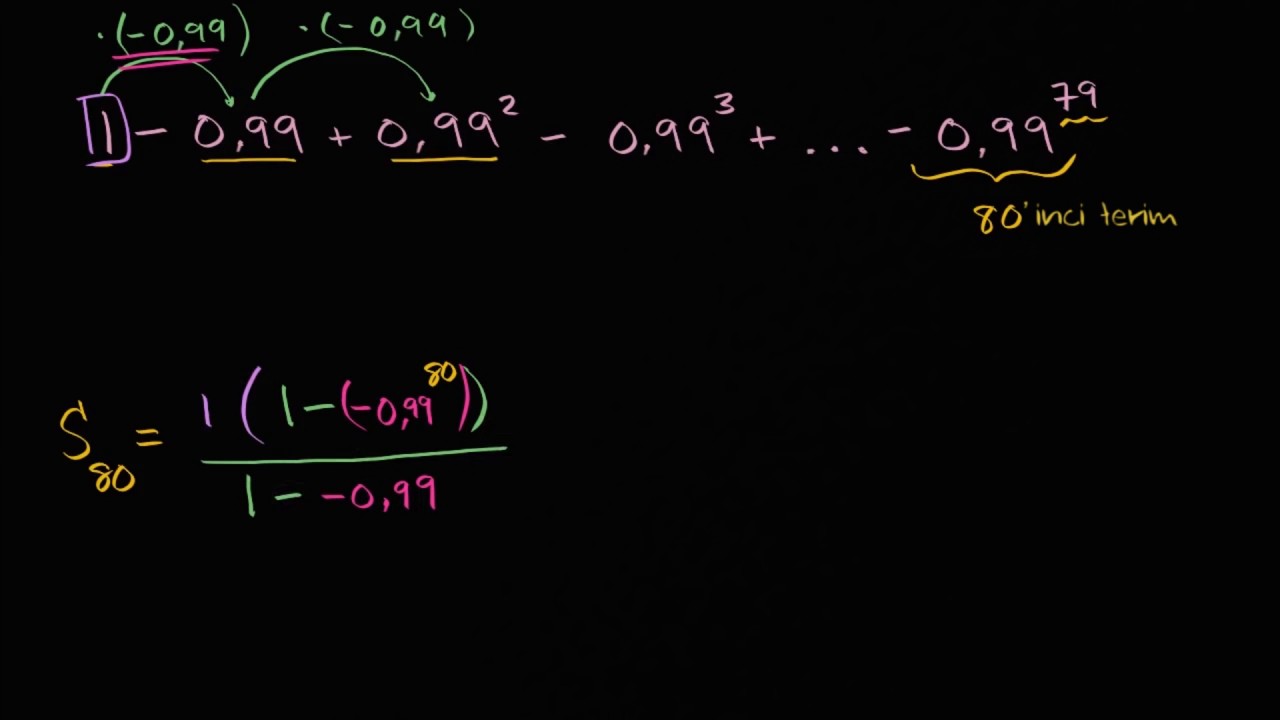 ·(-0,99) ·(-0,99)
1 - 0,99 + 0,99² - 0,99³ + ... - 0,99⁷⁹
80'inci terim
S₈₀ = 1 ( 1 - (-0,99⁸⁰) )
1 - -0,99